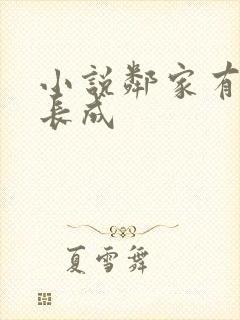 小說鄰家有
長成
夏雪舞